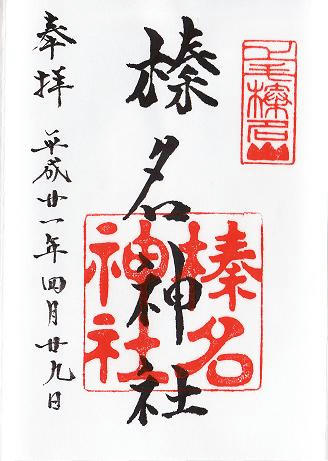 上毛榛名山
榛名神社
榛名神社
奉拝
平成廿一年四月廿九日